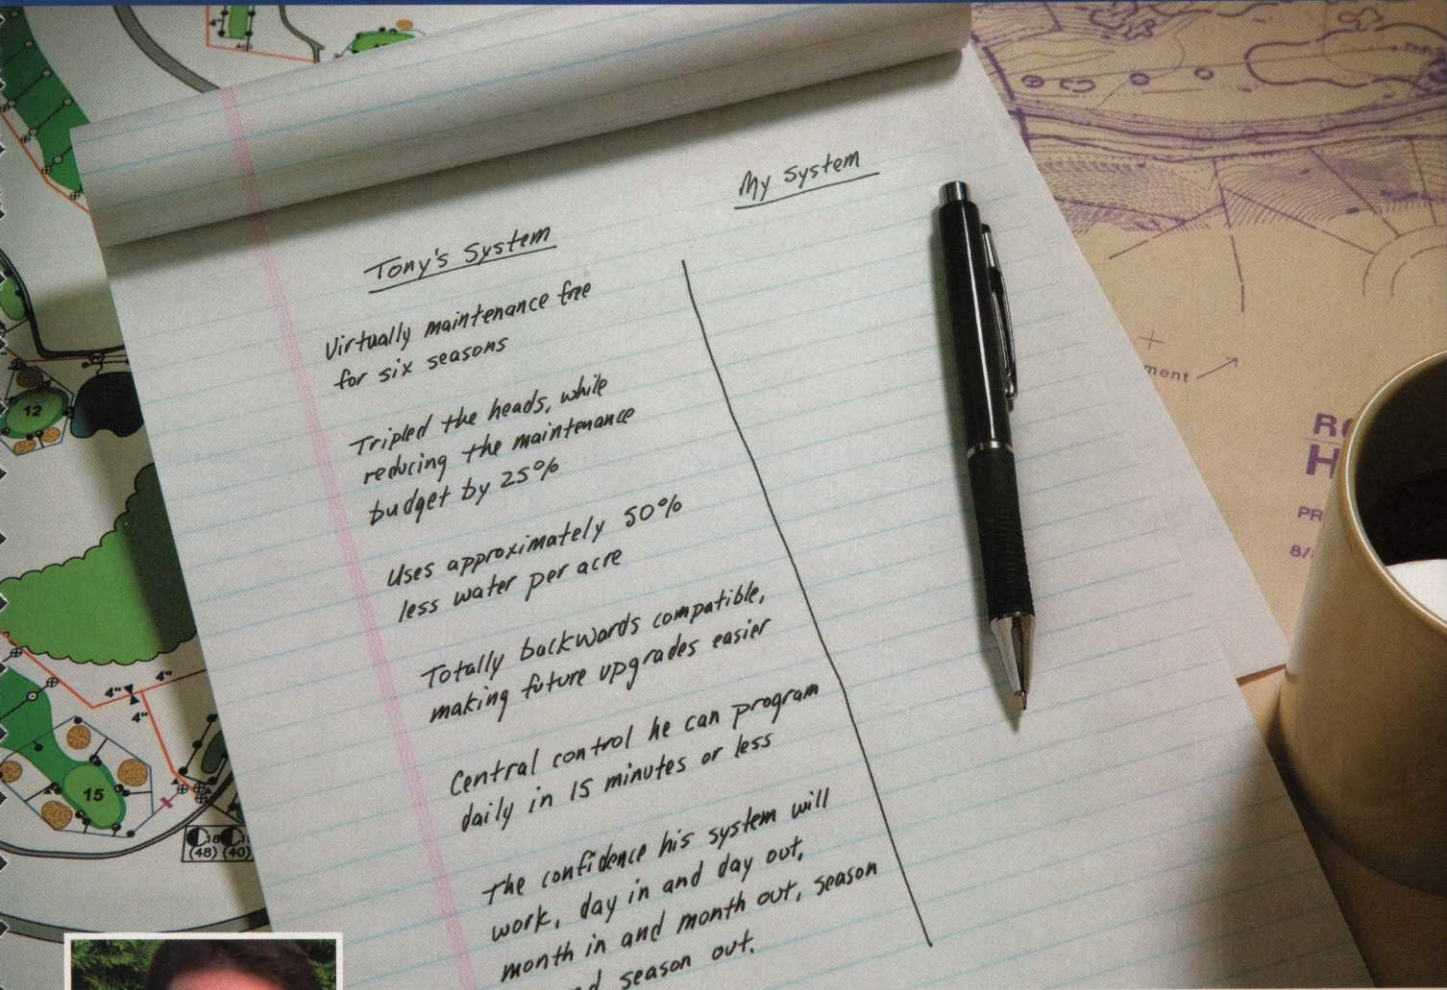 My System
Tony's System
Virtually maintenance free
for six seasons
Tripled the heads, while
reducing the maintenance
budget by 25%
Uses approximately 50%
less water per acre
Totally backwards compatible,
making future upgrades easier
Central control he can program
daily in 15 minutes or less
The confidence his system will
work, day in and day out,
month in and month out, season
season out.
12
4" 4"
4"
15
(48) (40)